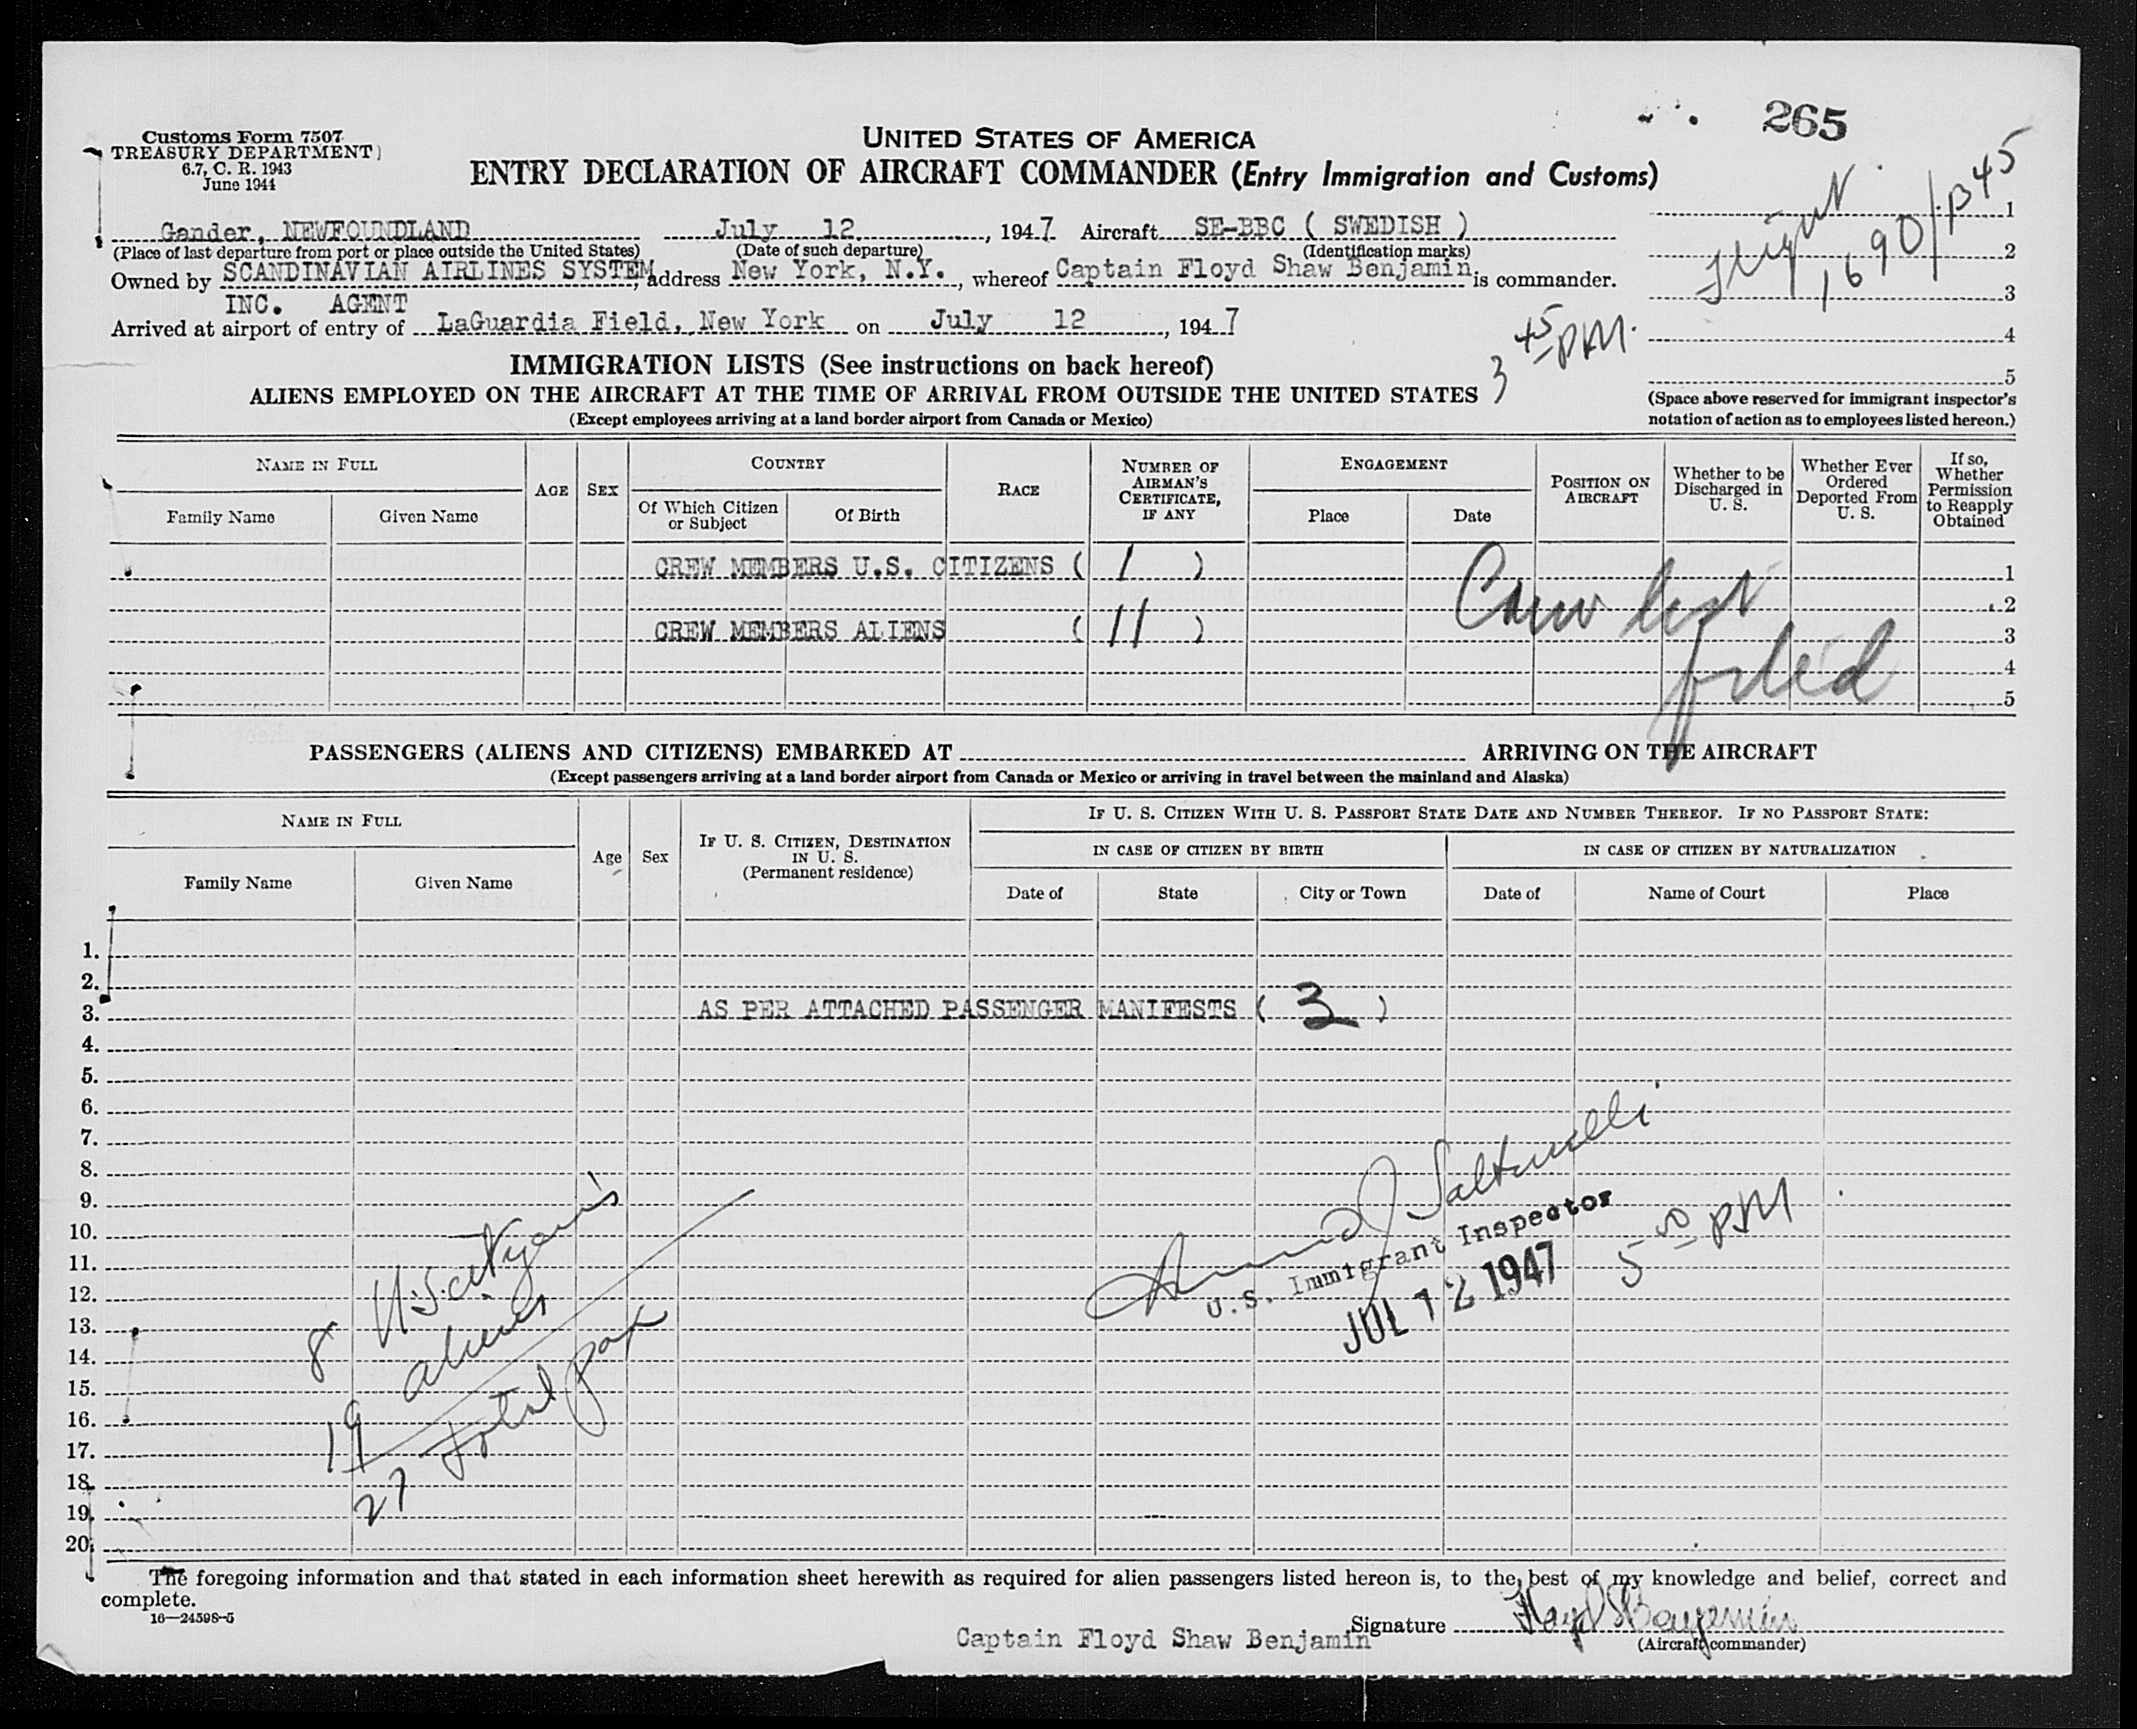 265
Customs Form 7507
TREASURY DEPARTMENT
6.7, C. R. 1943
June 1944
UNITED STATES OF AMERICA
ENTRY DECLARATION OF AIRCRAFT COMMANDER (Entry Immigration and Customs)
Gander, NEWFOUNDLAND July 12, 1947 Aircraft SE-BBC ( SWEDISH )
(Place of last departure from port or place outside the United States) (Date of such departure) (Identification marks)
Owned by SCANDINAVIAN AIRLINES SYSTEM, address New York, N.Y., whereof Captain Floyd Shaw Benjamin is commander.
INC. AGENT
Arrived at airport of entry of LaGuardia Field, New York on July 12, 1947
3 45 PM.
Flight 1690/ 45
1
2
3
4
5
(Space above reserved for immigrant inspector's
notation of action as to employees listed hereon.)
IMMIGRATION LISTS (See instructions on back hereof)
ALIENS EMPLOYED ON THE AIRCRAFT AT THE TIME OF ARRIVAL FROM OUTSIDE THE UNITED STATES
(Except employees arriving at a land border airport from Canada or Mexico)
NAME IN FULL
Family Name Given Name
AGE SEX
COUNTRY
Of Which Citizen or Subject Of Birth
RACE
NUMBER OF AIRMAN'S CERTIFICATE, IF ANY
ENGAGEMENT
Place Date
POSITION ON AIRCRAFT
Whether to be Discharged in U. S.
Whether Ever Ordered Deported From U. S.
If so, Whether Permission to Reapply Obtained
CREW MEMBERS U.S. CITIZENS ( 1 ) 1
2
CREW MEMBERS ALIENS ( 11 ) 3
4
5
Crew list
filed
PASSENGERS (ALIENS AND CITIZENS) EMBARKED AT ARRIVING ON THE AIRCRAFT
(Except passengers arriving at a land border airport from Canada or Mexico or arriving in travel between the mainland and Alaska)
NAME IN FULL
Family Name Given Name
Age Sex
IF U. S. CITIZEN, DESTINATION IN U. S.
(Permanent residence)
IF U. S. CITIZEN WITH U. S. PASSPORT STATE DATE AND NUMBER THEREOF. IF NO PASSPORT STATE:
IN CASE OF CITIZEN BY BIRTH IN CASE OF CITIZEN BY NATURALIZATION
Date of State City or Town Date of Name of Court Place
1.
2.
3. AS PER ATTACHED PASSENGER MANIFESTS ( 3 )
4.
5.
6.
7.
8.
9.
10.
11.
12.
13.
14.
15.
16.
17.
18.
19.
20.
8 U.S. citizens
19 aliens
27 total pax
U.S. Immigrant Inspector
JUL 12 1947
5 50 PM
The foregoing information and that stated in each information sheet herewith as required for alien passengers listed hereon is, to the best of my knowledge and belief, correct and
complete.
16—24598-5
Signature Floyd S Benjamin
Captain Floyd Shaw Benjamin (Aircraft commander)